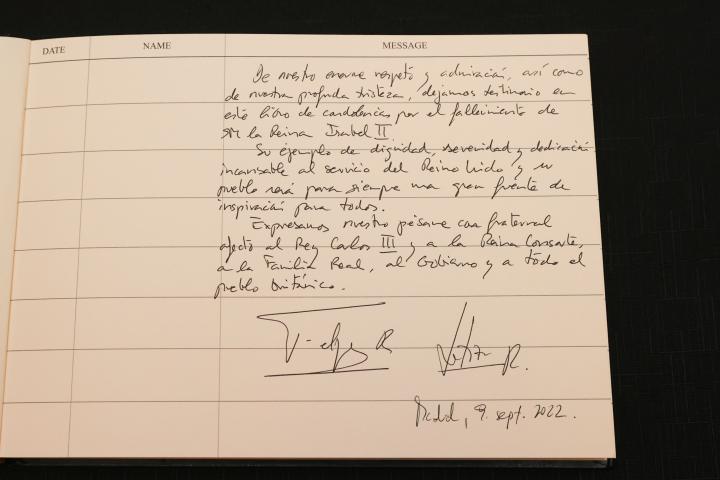 DATE NAME MESSAGE
De nuestro enorme respeto y admiración, así como
de nuestra profunda tristeza, dejamos testimonio en
este libro de condolencias por el fallecimiento de
SM la Reina Isabel II.
Su ejemplo de dignidad, serenidad y dedicación
incansable al servicio del Reino Unido y su
pueblo será para siempre una gran fuente de
inspiración para todos.
Expresamos nuestro pésame con fraternal
afecto al Rey Carlos III y a la Reina Consorte,
a la Familia Real, al Gobierno y a todo el
pueblo británico.
Felipe R Letizia R.
Madrid, 9. sept. 2022.